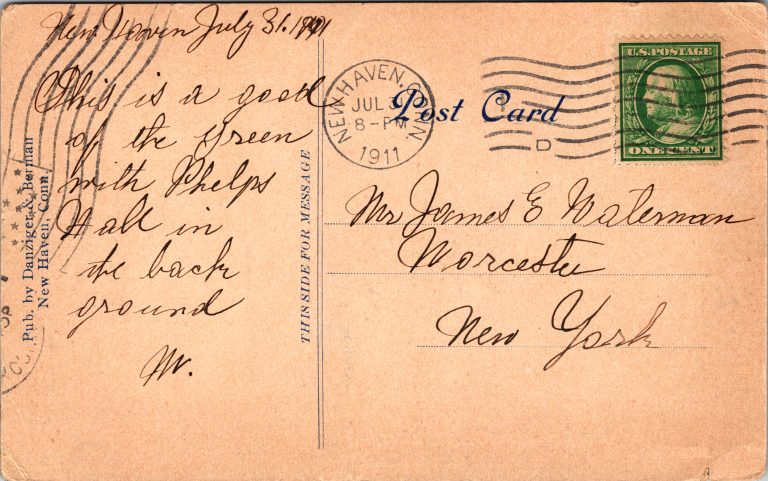 New Haven July 31. 1911
This is a good
of the Green
with Phelps
Hall in
the back
ground
M.
Pub. by Danziger & Berman
New Haven, Conn.
THIS SIDE FOR MESSAGE
NEW HAVEN, CONN
JUL 3
8-PM
1911
Post Card
D
U.S. POSTAGE
ONE CENT
Mr James E Waterman
Worcester
New York